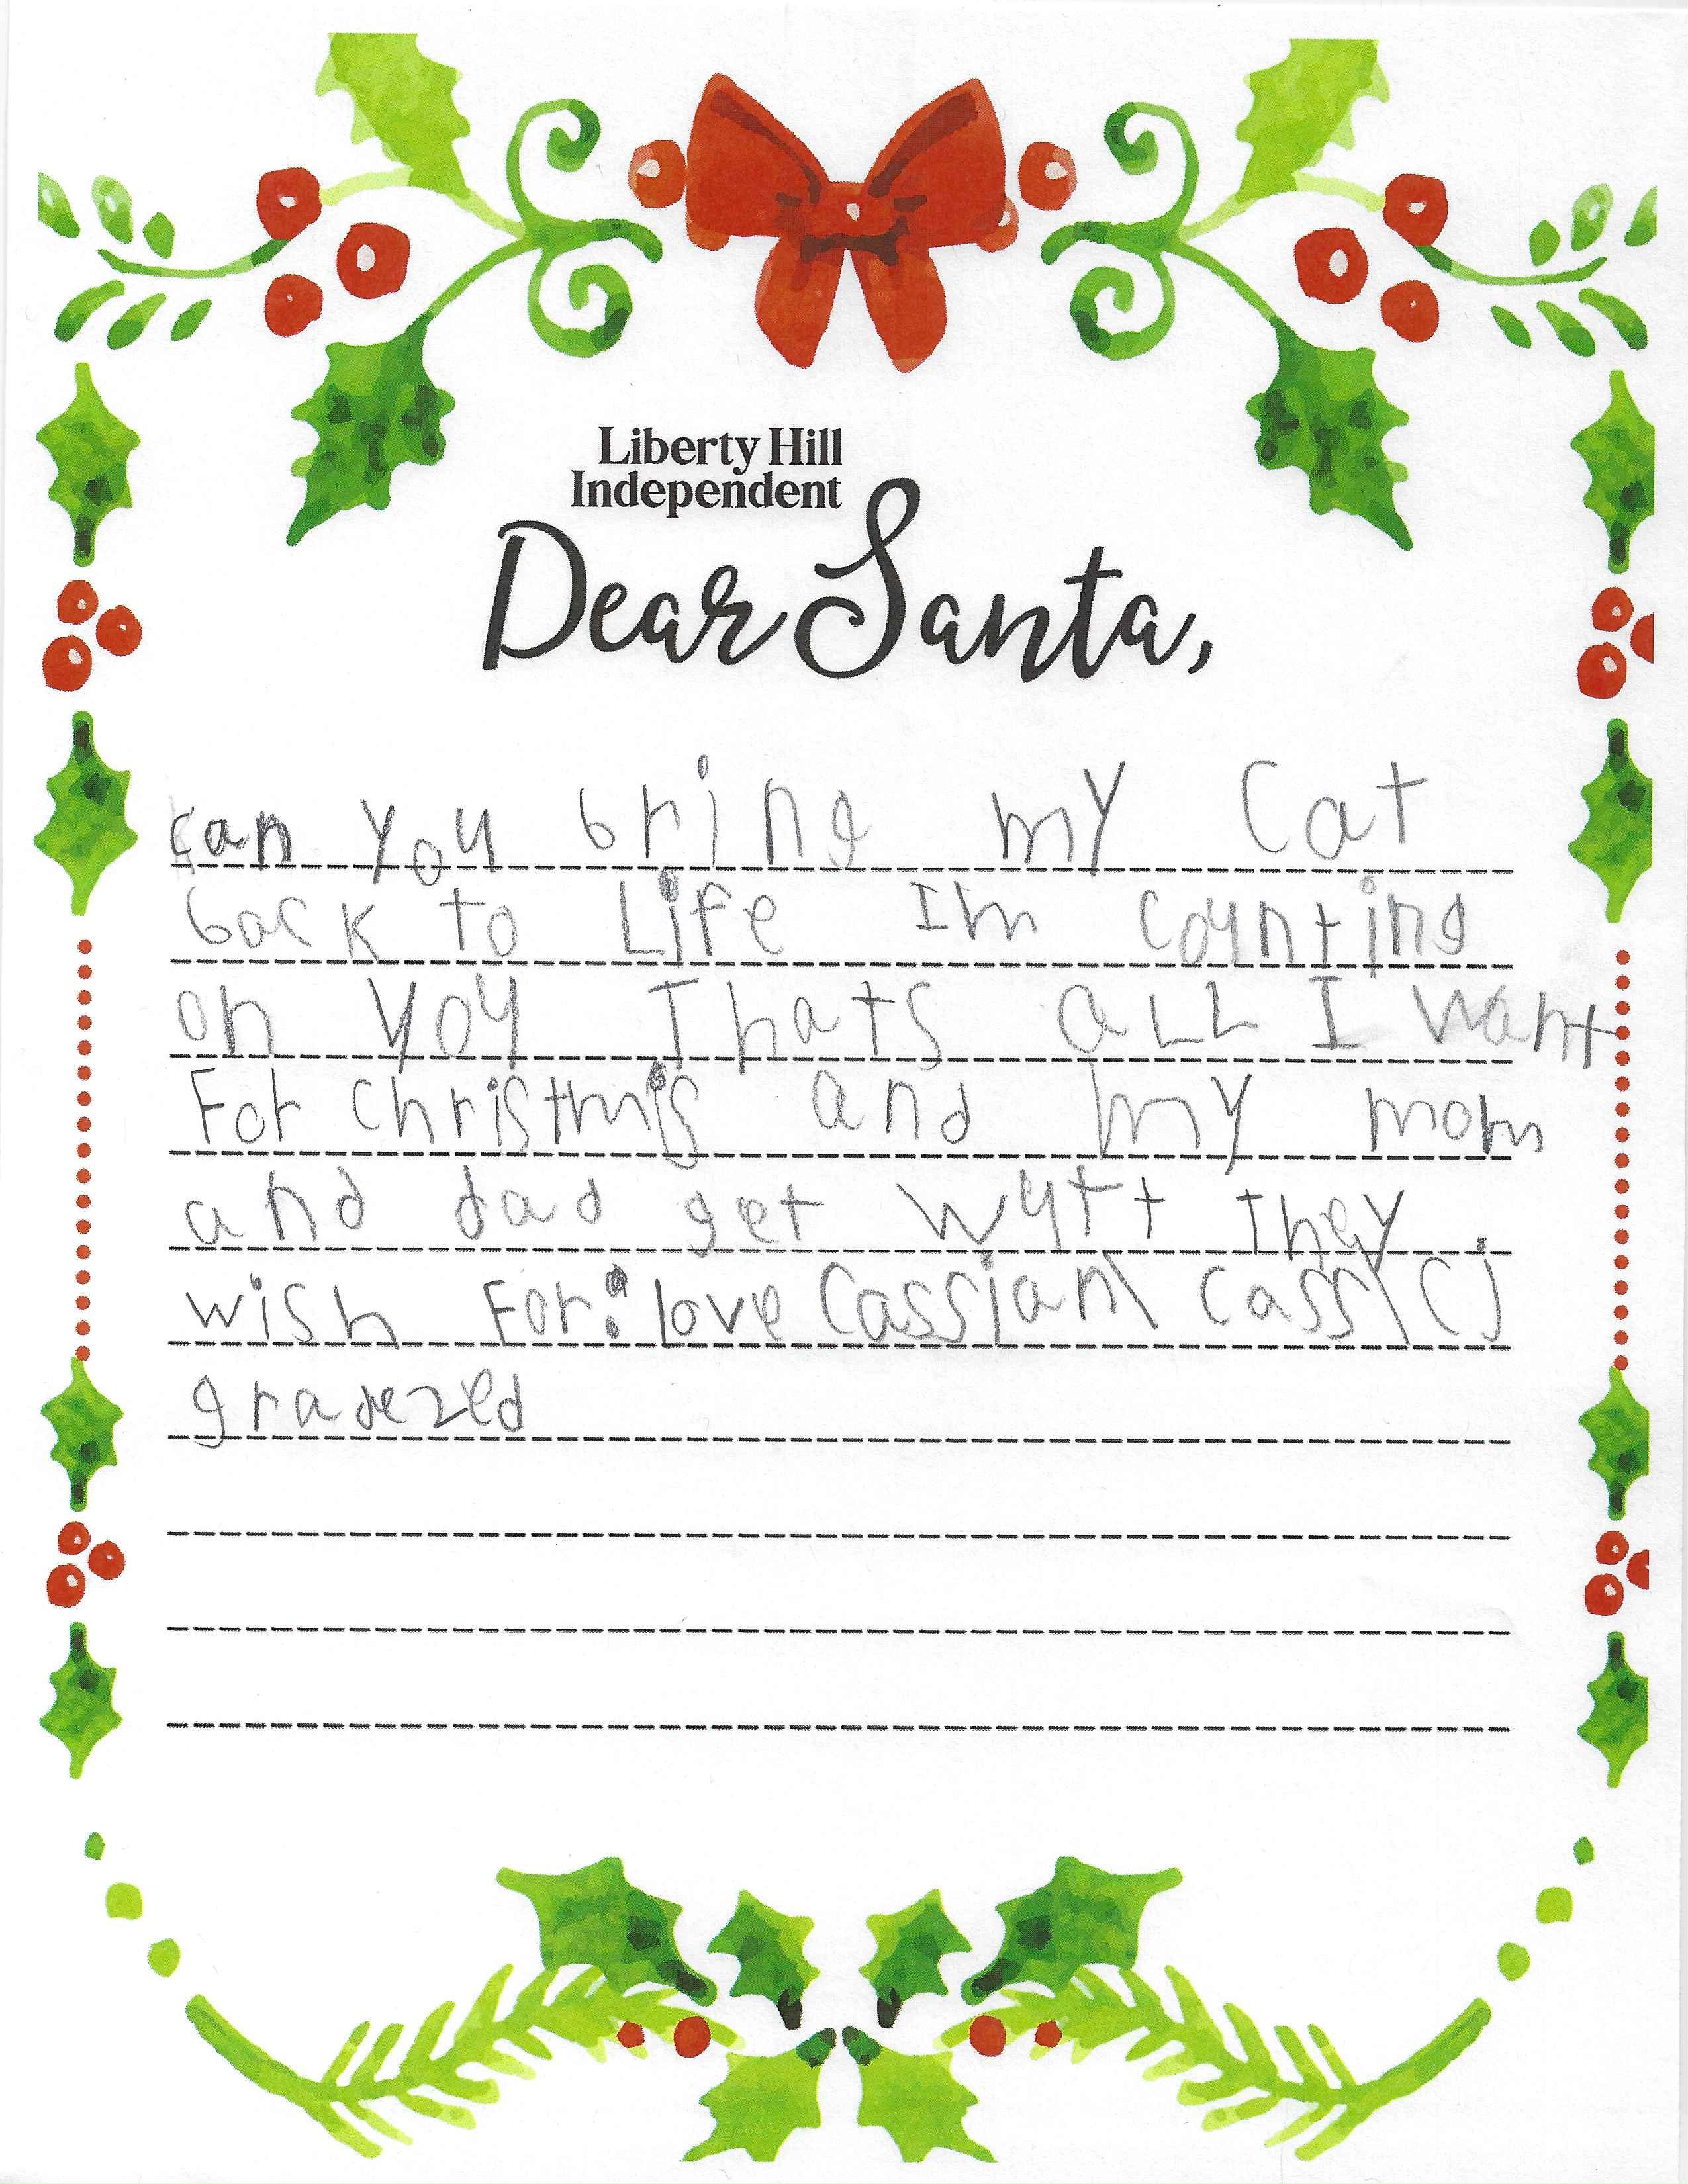 Liberty Hill
Independent
Dear Santa,
can you bring my Cat
back to Life Im counting
on yoy Thats aLL I want
For Christmis and my mom
and dad get wytt they
wish For: love Cassian\ Cass\ Cj
gradezed